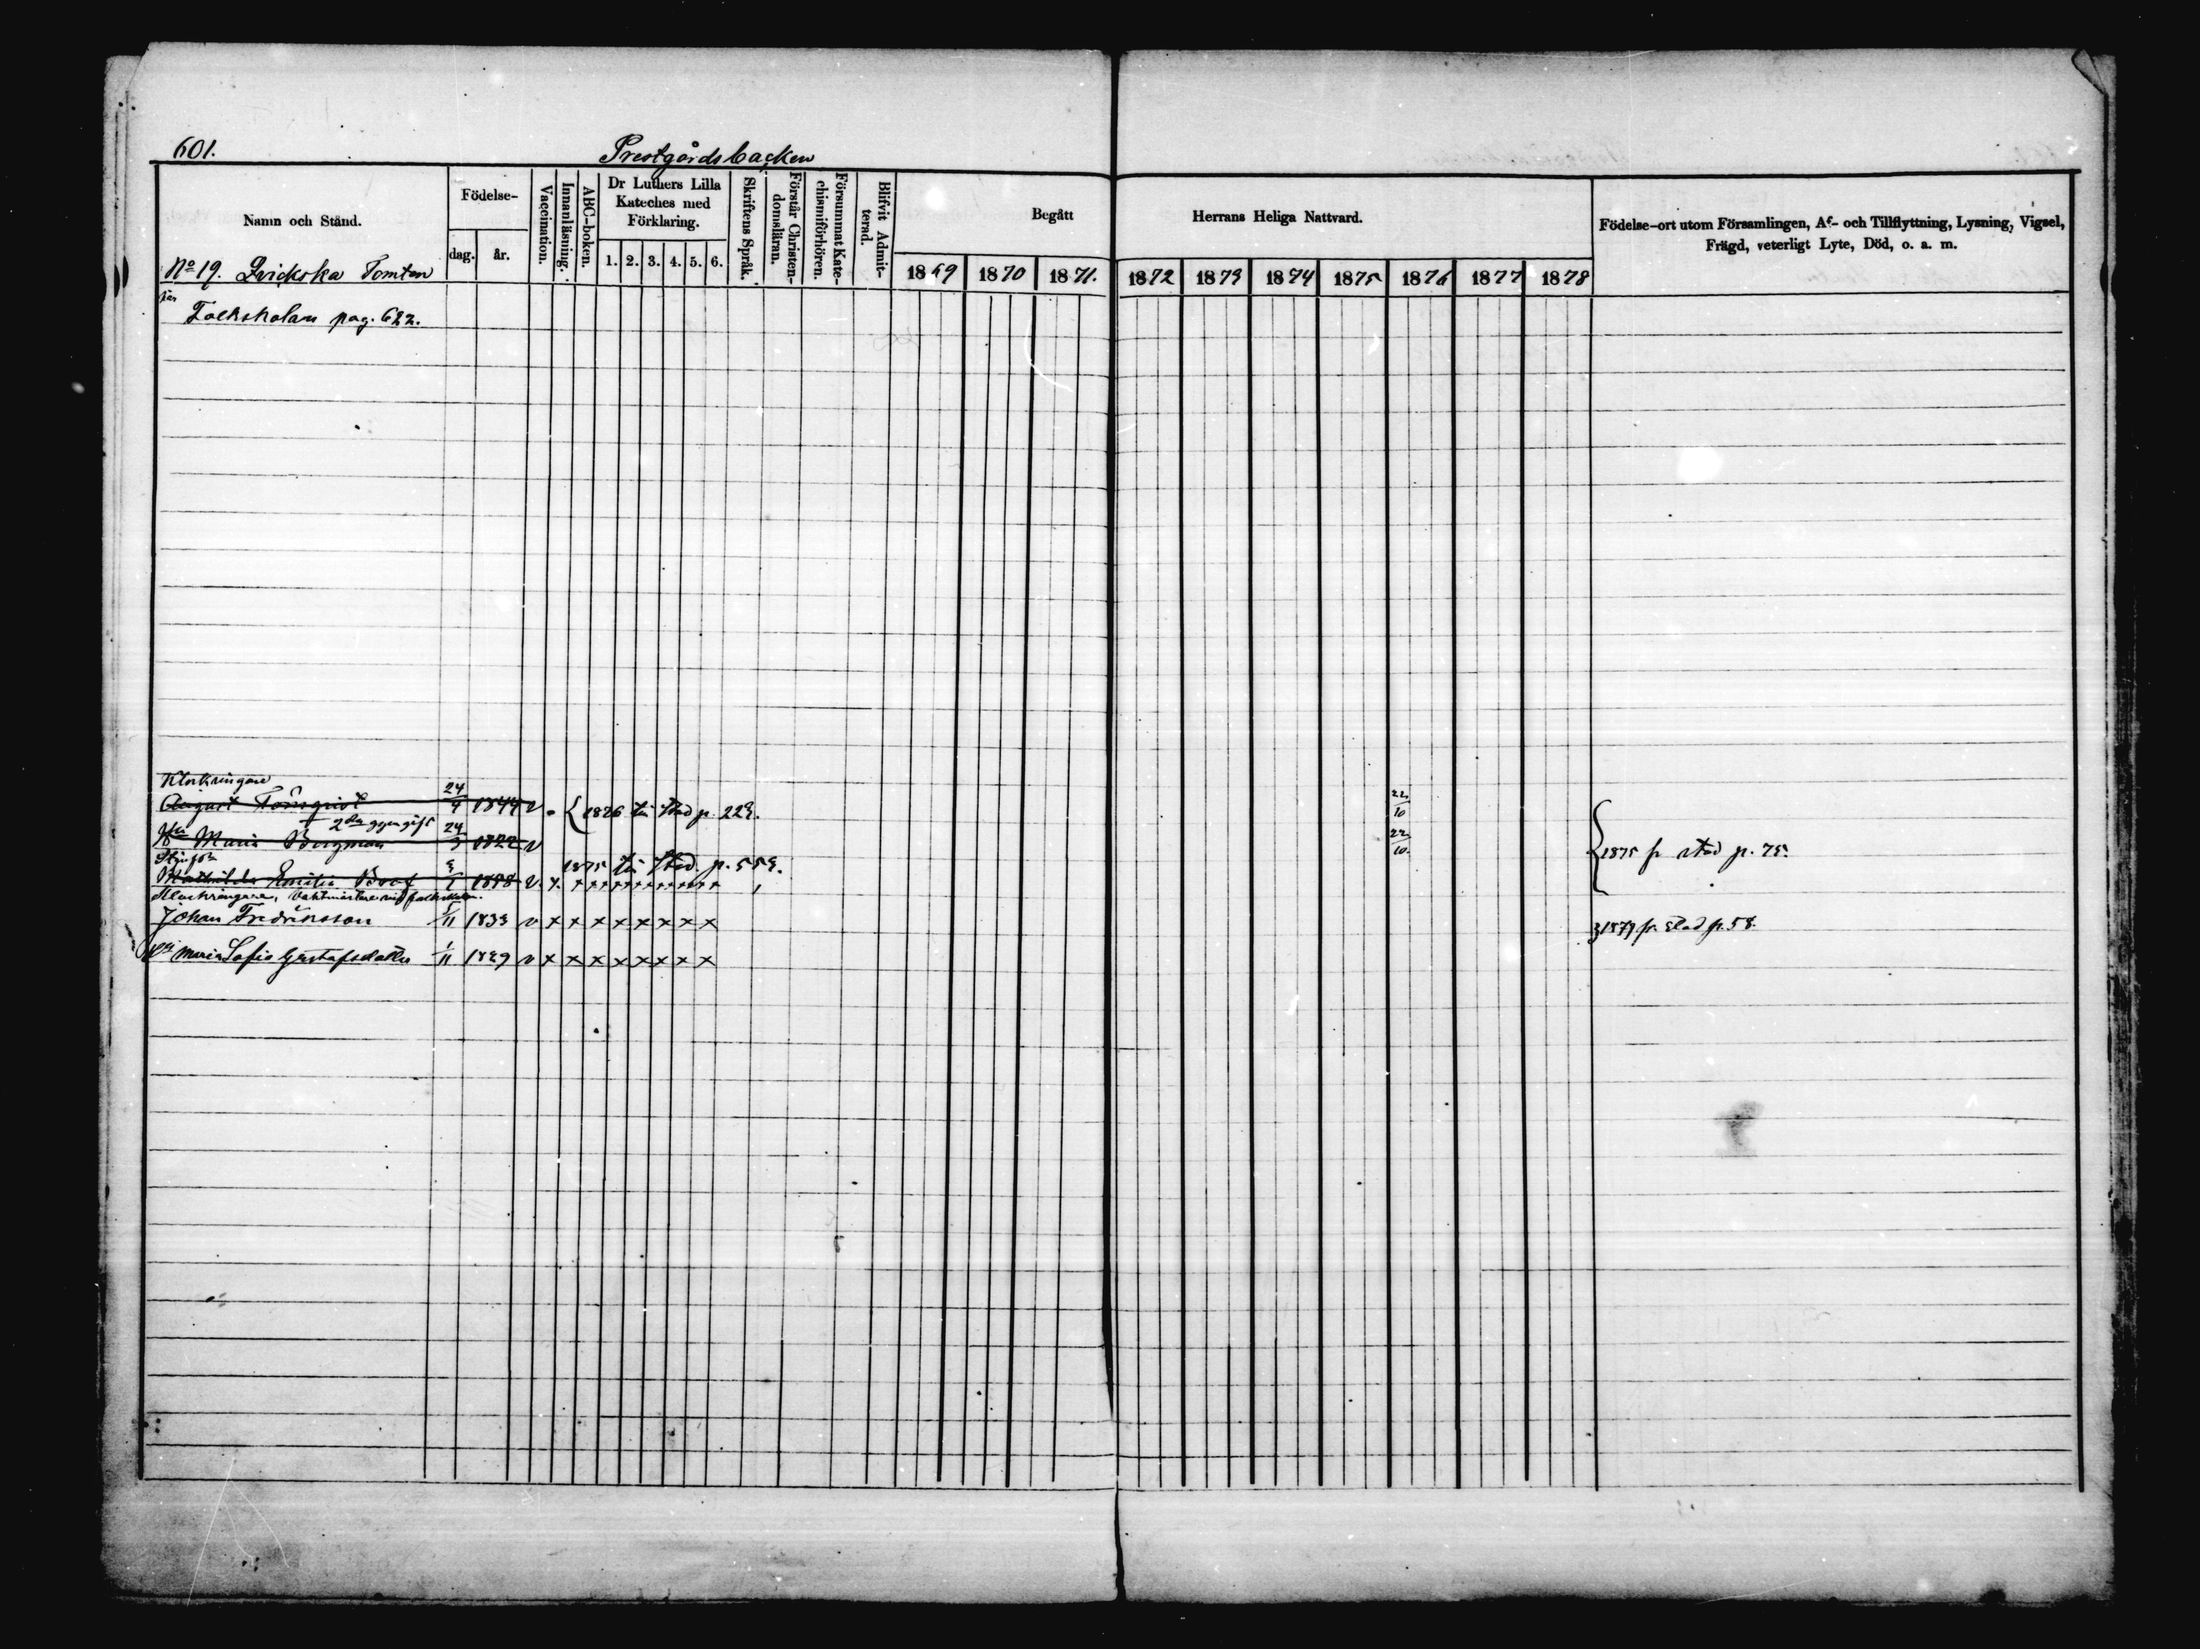 601. Prestgårdsbacken
Namn och Stånd.
Födelse-
dag. år.
Vaccination.
Innanläsning.
ABC-boken.
Dr Luthers Lilla
Kateches med
Förklaring.
1. 2. 3. 4. 5. 6.
Skriftens Språk.
Förstår Christen-
domsläran.
Försummat Kate-
chismiförhören.
Blifvit Admit-
terad.
Begått Herrans Heliga Nattvard.
1869 1870 1871. 1872 1873 1874 1875 1876 1877 1878
Födelse-ort utom Församlingen, Af- och Tillflyttning, Lysning, Vigsel,
Frägd, veterligt Lyte, Död, o. a. m.
No 19. Qvickska Tomten
Folkskolan pag. 622.
Klockringare
August Törnqvist 24/4 1844 v 1876 till stad p. 229. 22/10
2 dra ggn gift
Maria Bergman 24/3 1822 v 22/10. 1875 fr stad p. 75.
1875 till stad. p. 559.
Mathilda Emilia 1858 v. x x x x x x x x x x
Klockringare, Vaktmästare vid folkskolan.
Johan Fredriksson 5/11 1833 v x x x x x x x x 1879 fr. stad p. 58.
Maria Sofia Gustafsdotter 1/11 1839 v x x x x x x x x